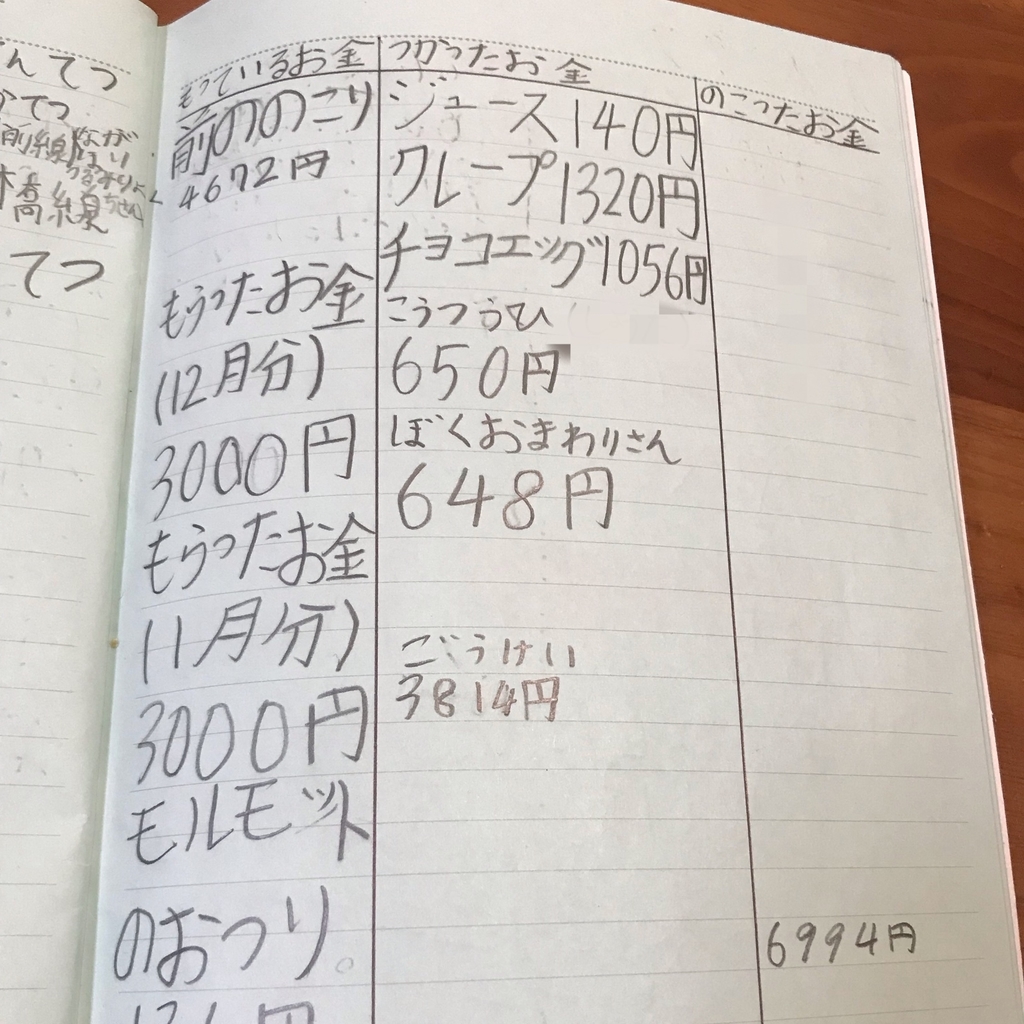 てつ
てつ
もっているお金
前ののこり
4672円
もらったお金
(12月分)
3000円
もらったお金
(1月分)
3000円
モルモット
のおつり。
つかったお金
ジュース140円
クレープ1320円
チョコエッグ1056円
こうつうひ
650円
ぼくおまわりさん
648円
ごうけい
3814円
のこったお金
6994円